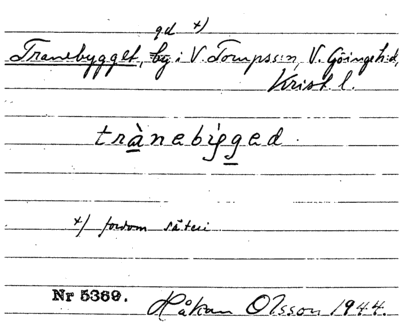 gd x)
Tranebygget, bg i V. Torups:n, V. Göinge h:d,
Krist. l.
trànebig̀ged.
x) fordom säteri
Nr 5369. Håkan Olsson 1944.